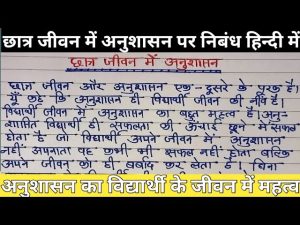 छात्र जीवन में अनुशासन पर निबंध हिन्दी में
छात्र जीवन में अनुशासन
छात्र जीवन और अनुशासन एक-दूसरे के पूरक हैं।
कहें कि अनुशासन ही विद्यार्थी जीवन की नींव है।
विद्यार्थी जीवन में अनुशासन का बहुत महत्व है। अनु-
शासित विद्यार्थी ही सफलता की ऊंचाई छूने में सफल
होता है जो विद्यार्थी अपने जीवन में अनुशासन
नहीं अपनाता वह कभी भी सफल नहीं होता बल्कि
अपने जीवन को ही बर्बाद कर लेता है। बिना
अनुशासन का विद्यार्थी के जीवन में महत्व